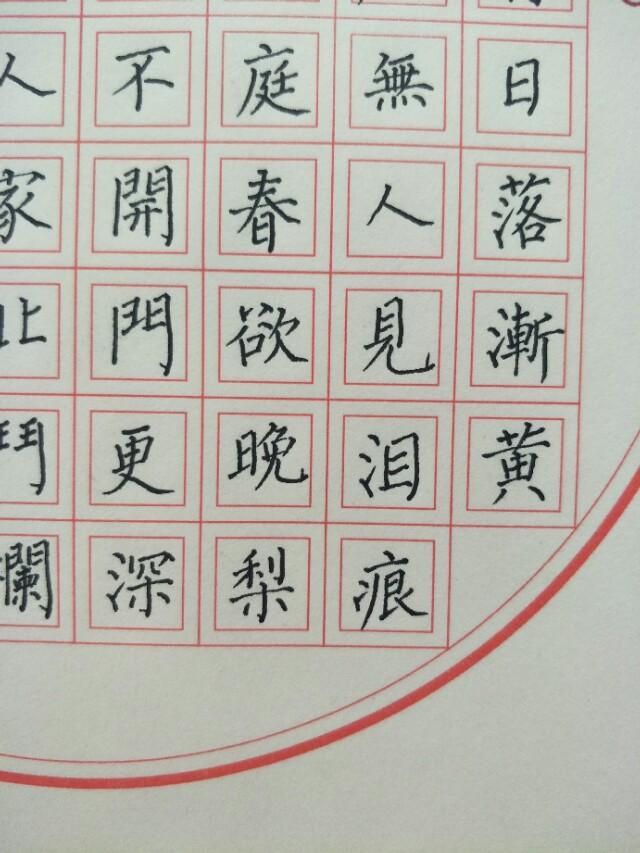 日落漸黄
無人見泪痕
庭春欲晚梨
不開門更深
人家北鬥欄